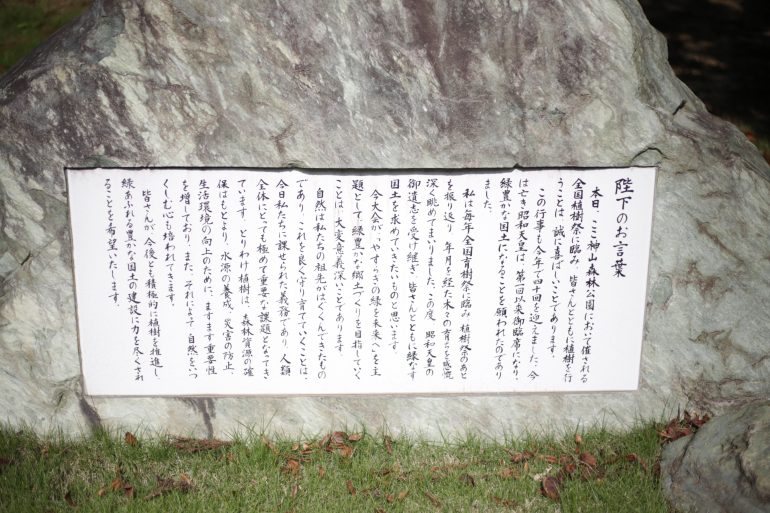 陛下のお言葉
本日、ここ神山森林公園において催される
全国植樹祭に臨み、皆さんとともに植樹を行
うことは、誠に喜ばしいことであります。
この行事も今年で四十回を迎えました。今
は亡き昭和天皇は、第一回以来御臨席になり、
緑豊かな国土になることを願われたのであり
ました。
私は毎年全国育樹祭に臨み、植樹祭のあと
を振り返り、年月を経た木々の育ちを感慨
深く眺めてまいりました。この度、昭和天皇の
御遺志を受け継ぎ、皆さんとともに緑なす
国土を求めていきたいものと思います。
今大会が、「やすらぎの緑を未来へ」を主
題として、緑豊かな郷土づくりを目指していく
ことは、大変意義深いことであります。
自然は私たちの祖先がはぐくんできたもの
であり、これを良く守り育てていくことは、
今日私たちに課せられた義務であり、人類
全体にとっても極めて重要な課題となってき
ています。とりわけ植樹は、森林資源の確
保はもとより、水源の養成、災害の防止、
生活環境の向上のために、ますます重要性
を増しており、また、それによって自然をいつ
くしむ心も培われてきます。
皆さんが、今後とも積極的に植樹を推進し、
緑あふれる豊かな国土の建設に力を尽くされ
ることを希望いたします。